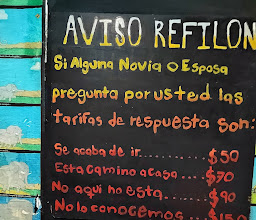 AVISO REFILON
Si Alguna Novia o Esposa
pregunta por usted las
tarifas de respuesta son:
Se acaba de ir.......... $50
Esta camino a casa.... $70
No aqui no esta....... $90
No lo conocemos